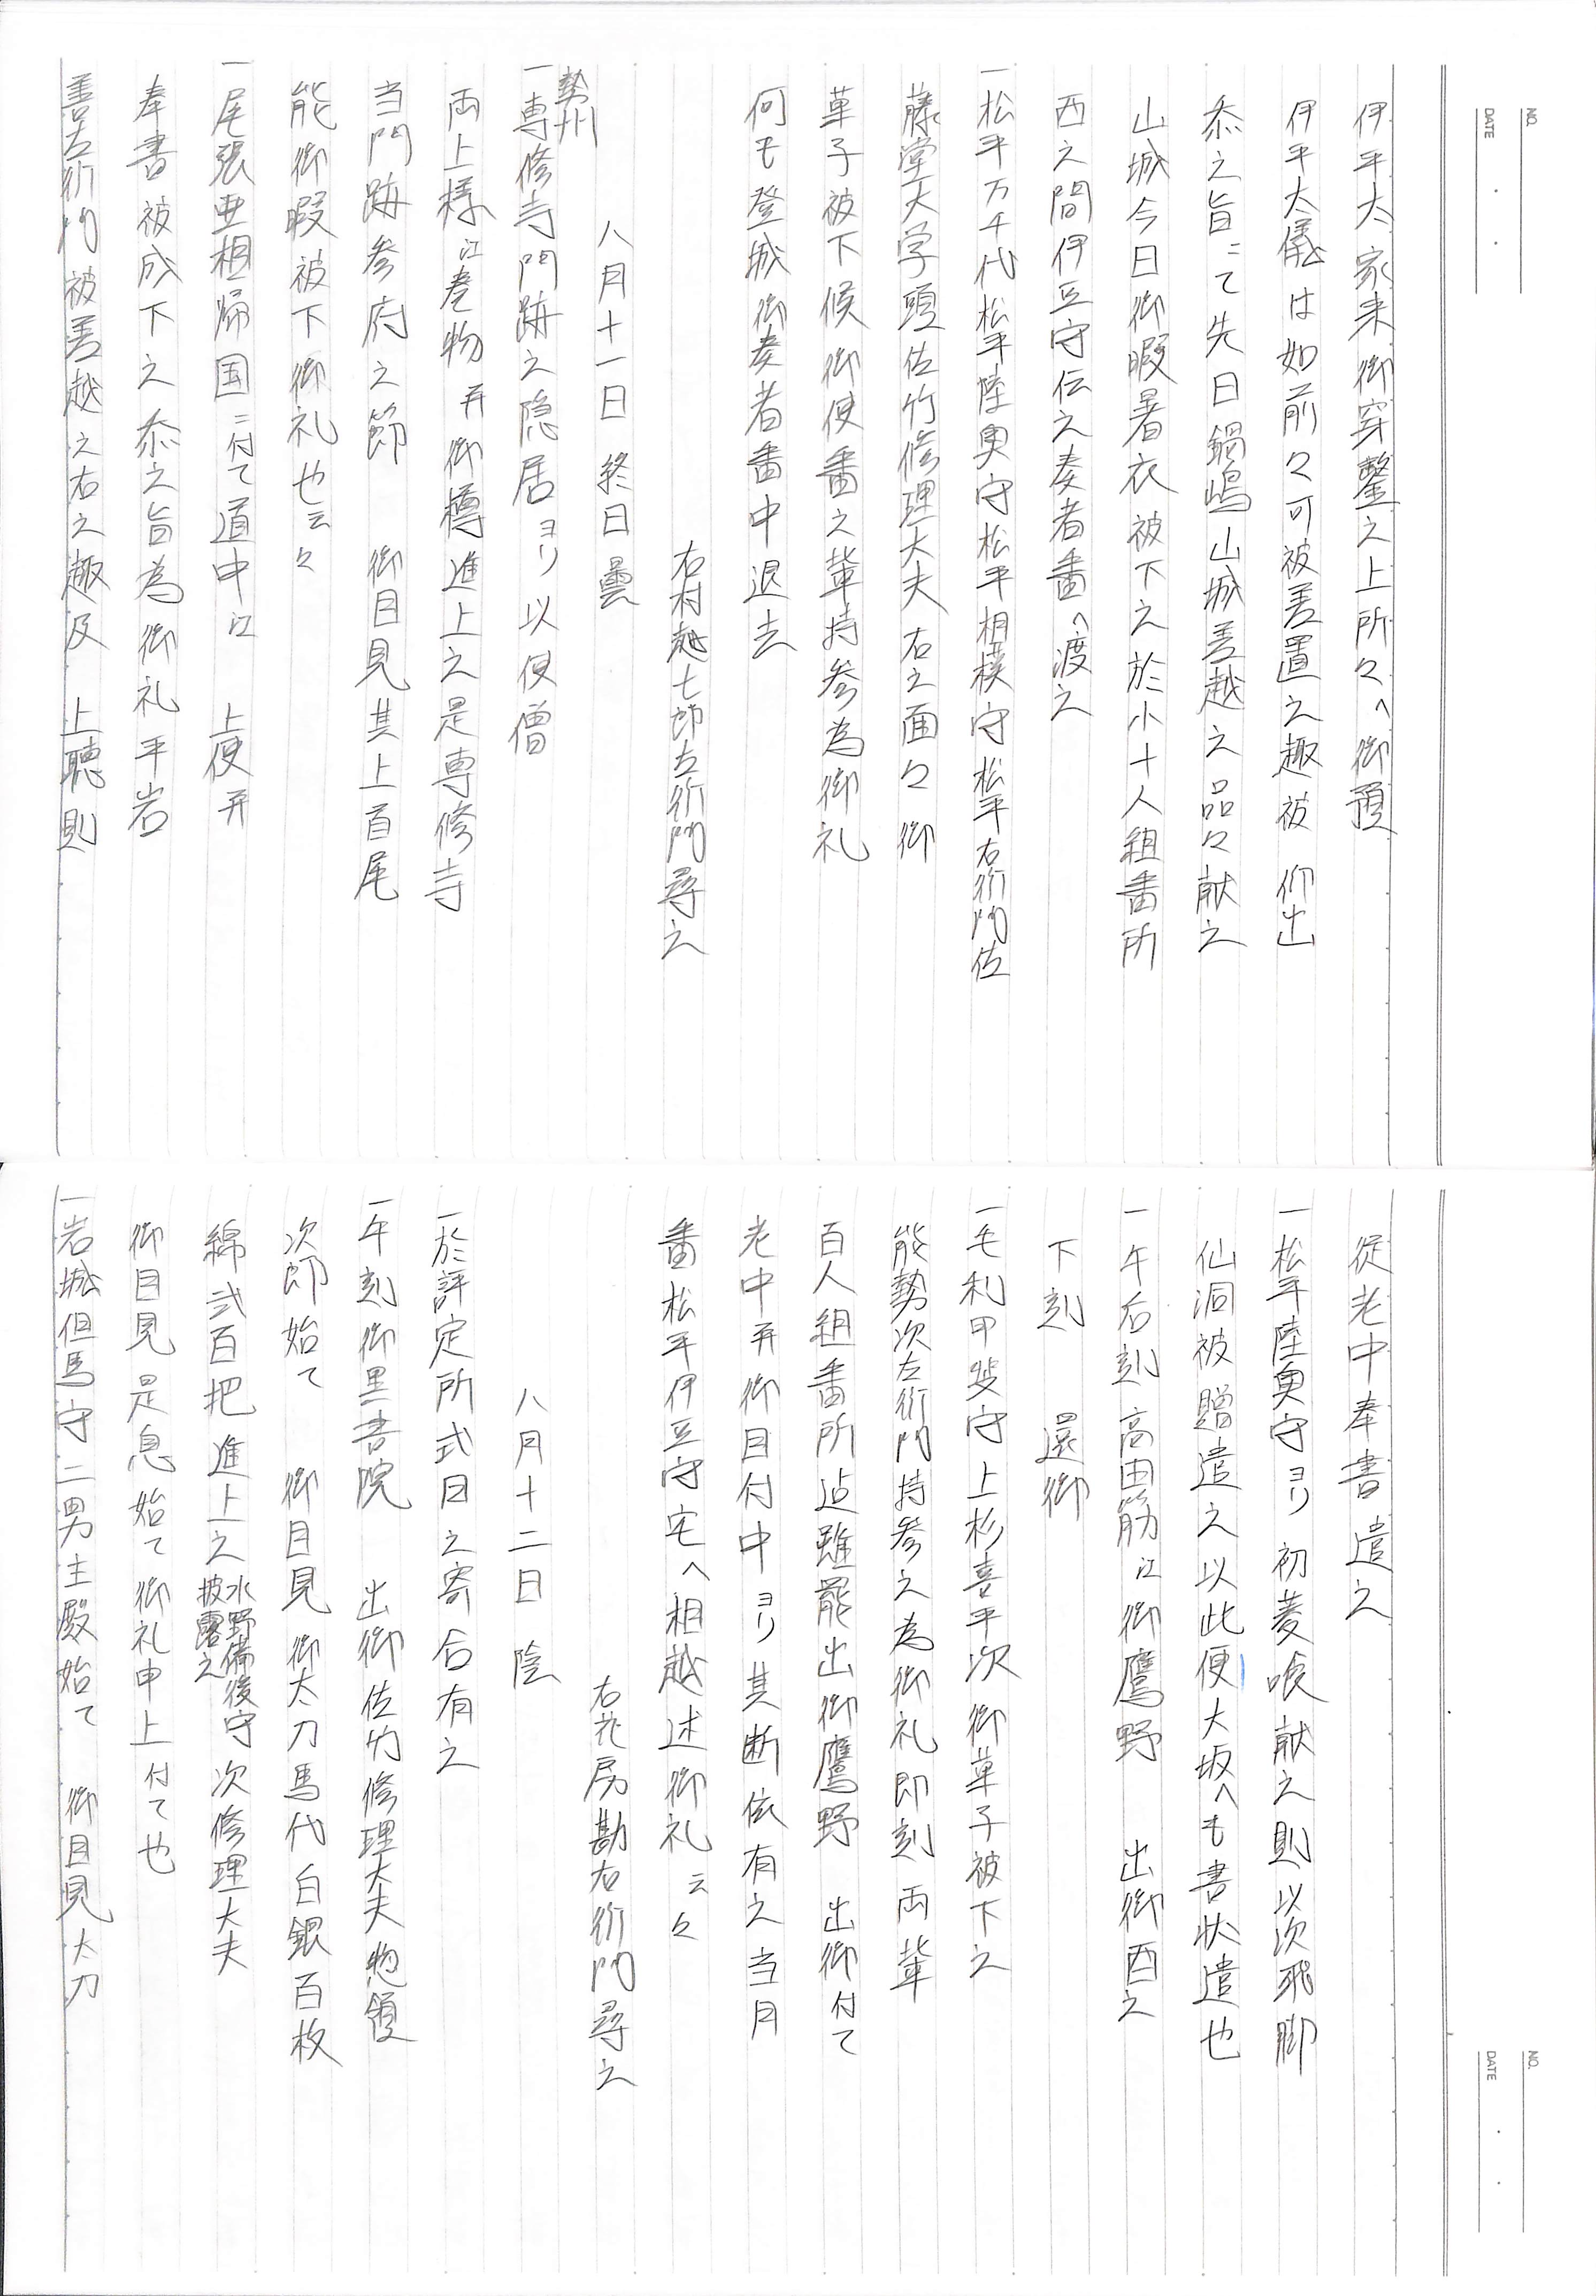 NO.
DATE
伊平太家来御穿鑿之上所々へ御預
伊平太儀は如前々可被差置之趣被 仰出
忝之旨ニて先日鍋嶋山城差越之品々献之
山城今日御暇暑衣被下之於小十人組番所
西之間伊豆守伝之奏者番へ渡之
一松平万千代松平陸奥守松平相模守松平右衛門佐
藤堂大学頭佐竹修理大夫右之面々御
菓子被下候御使番之輩持参為御礼
何も登城御奏者番中退去
右村越七郎左衛門尋之
八月十一日 終日曇
勢州
一専修寺門跡之隠居ヨリ以使僧
両上様江巻物并御樽進上之是専修寺
当門跡参府之節 御目見其上首尾
能御暇被下御礼也云々
一尾張亜相帰国ニ付て道中江 上使并
奉書被成下之忝之旨為御礼平岩
善左衛門被差越之右之趣及 上聴則
NO.
DATE
従老中奉書遣之
一松平陸奥守ヨリ初菱喰献之則以次飛脚
仙洞被贈遣之以此便大坂へも書状遣也
一午后刻高田筋江御鷹野 出御酉之
下刻 還御
一毛利甲斐守上杉喜平次御菓子被下之
能勢次左衛門持参之為御礼即刻両輩
百人組番所迠雖罷出御鷹野 出御付て
老中并御目付中ヨリ其断依有之当月
番松平伊豆守宅へ相越述御礼云々
右花房勘右衛門尋之
八月十二日 陰
一於評定所式日之寄合有之
一午刻御黒書院 出御佐竹修理大夫惣領
次郎始て 御目見御太刀馬代白銀百枚
綿弐百把進上之水野備後守披露之次修理大夫
御目見是息始て御礼申上付て也
一岩城但馬守二男主殿始て 御目見太刀